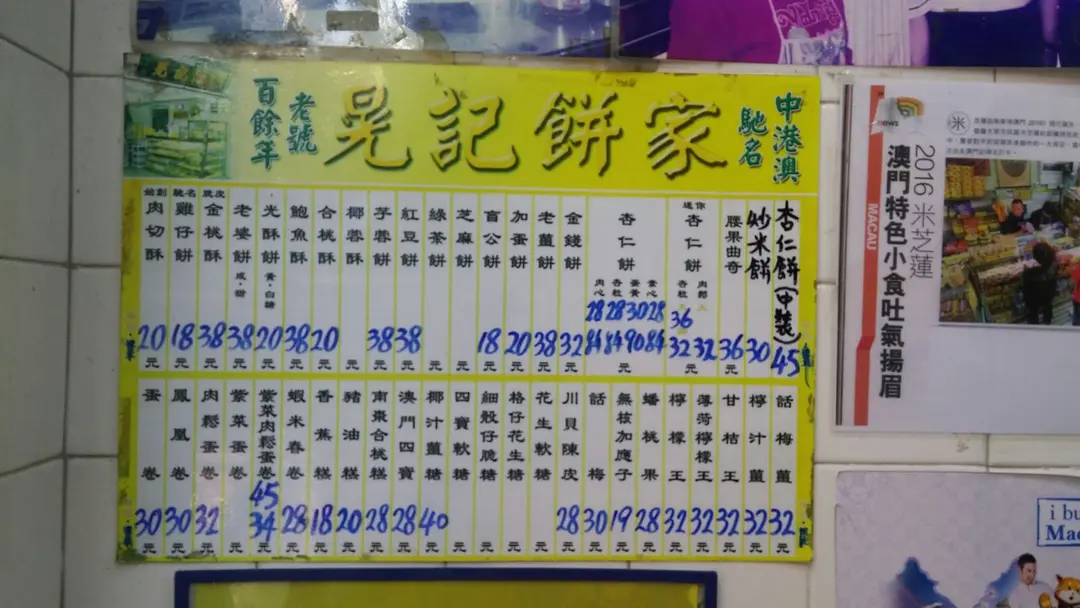 百餘年
老號
晃記餅家
馳名
中港澳
始創
肉切酥 20元
馳名
雞仔餅 18元
脆皮
金桃酥 38元
老婆餅 咸·甜 38元
光酥餅 黃·白糖 20元
鮑魚酥 38元
合桃酥 20元
椰蓉酥 元
芋蓉餅 38元
紅豆餅 38元
綠茶餅 元
芝麻餅 元
盲公餅 18元
加蛋餅 20元
老薑餅 38元
金錢餅 32元
杏仁餅
肉心 28 84
杏粒 28 84
蛋黃 30 90
素心 28 84
元
迷你
杏仁餅
杏粒 36 32
肉鬆 32
元
腰果曲奇 36元
炒米餅 30
杏仁餅(中裝) 45元
蛋卷 30元
鳳凰卷 30元
肉鬆蛋卷 32元
紫菜蛋卷 元
紫菜肉鬆蛋卷 45 34元
蝦米春卷 28元
香蕉糕 18元
豬油糕 20元
南棗合桃糕 28元
澳門四寶 28元
椰汁薑糖 40元
四寶軟糖 元
細骰仔脆糖 元
格仔花生糖 元
花生軟糖 元
川貝陳皮 28元
話梅 30元
無核加應子 19元
蟠桃果 28元
檸檬王 32元
薄荷檸檬王 32元
甘桔王 32元
檸汁薑 32元
話梅薑 32元
news
MACAU
2016 米芝蓮
澳門特色小食吐氣揚眉
米
i bu
Mac